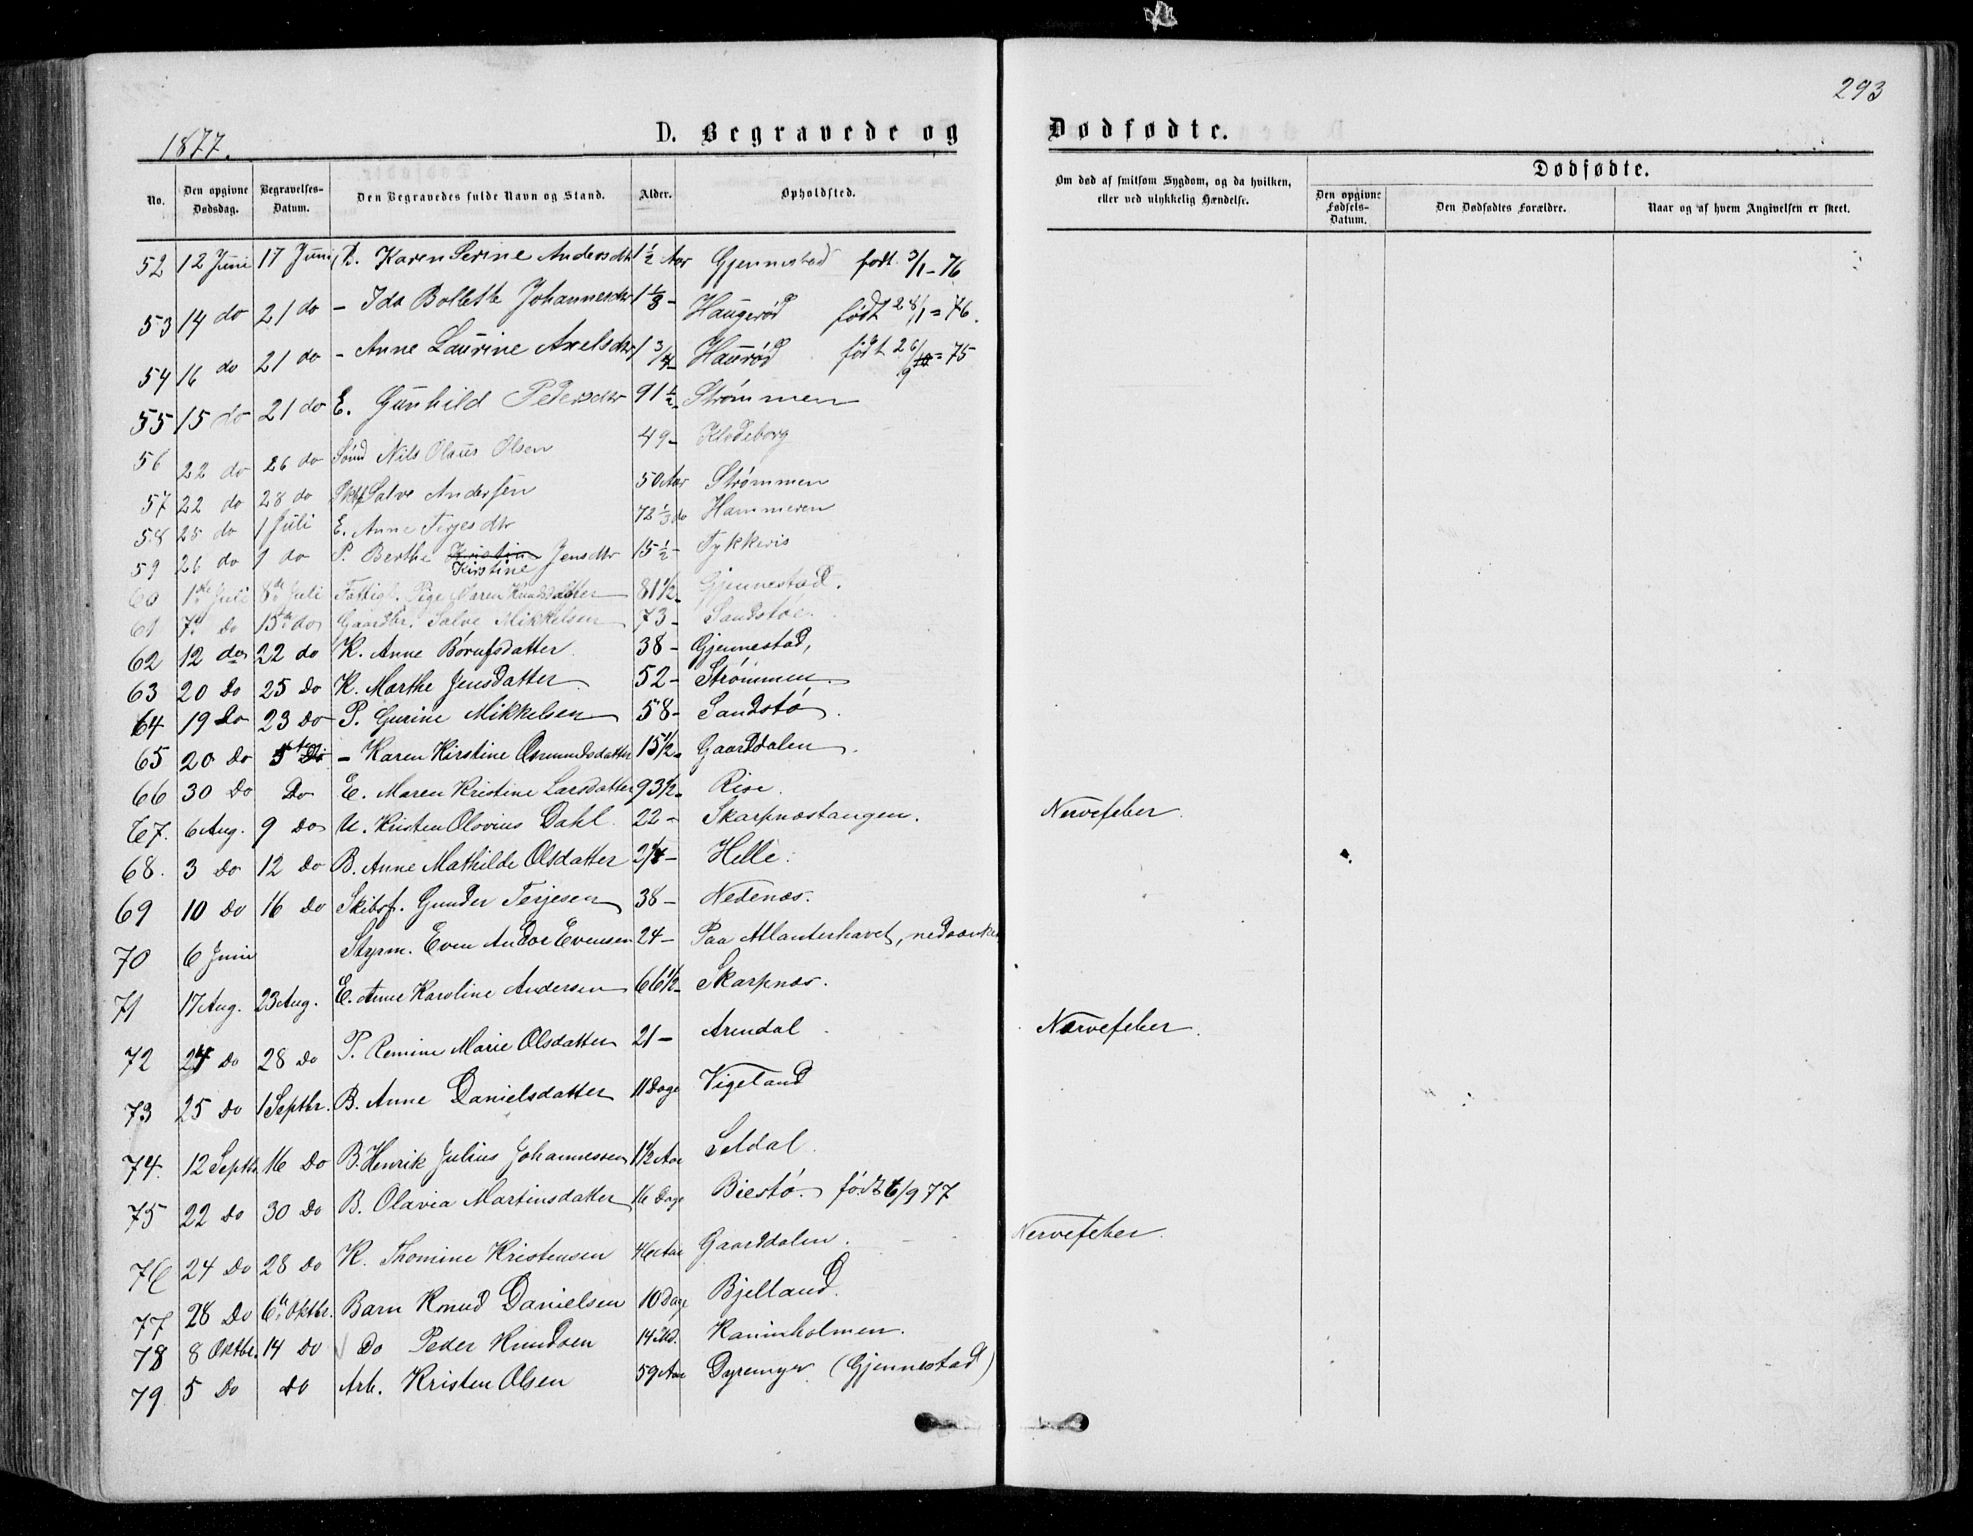 293
1877.
D. Begravede og Dødfødte.
No.
Den opgivne Dødsdag.
Begravelses-Datum.
Den Begravedes fulde Navn og Stand.
Alder.
Opholdsted.
Om død af smitsom Sygdom, og da hvilken, eller ved ulykkelig Hændelse.
Dødfødte.
Den opgivne Fødsels-Datum.
Den Dødfødtes Forældre.
Naar og af hvem Angivelsen er skeet.
52 12 Juni 17 Juni B. Karen Serine Andersdtr 1 1/2 Aar Gjennestad født 3/1-76
53 14 do 21 do - Ida Bolette Johannesdtr 1 1/3 - Haugerød født 28/1 = 76.
54 16 do 21 do - Anne Laurine Axelsdtr 1 3/4 - Haurød født 26/9 = 75
55 15 do 21 do E. Gunhild Pedersdtr 91 1/2 - Strømmen
56 22 do 26 do Nils Olaus Olsen 49 - Klodeborg
57 22 do 28 do Salve Andersen 50 Aar Strømmen
58 25 do 1 Juli E. Anne Terjesdtr 72 1/3 do Hammeren
59 26 do 1 do P. Berthe Kirstine Jensdtr 15 1/2 - Tykkeris
60 1ste Juli 8de Juli Fattigl. Pige Maren Knudsdatter 81 1/2 - Gjennestad.
61 7de do 15de do Gaardbr. Salve Mikkelsen 73 - Sandstøe.
62 12 do 22 do K. Anne Børufsdatter 38 - Gjennestad,
63 20 Do 25 Do K. Marthe Jensdatter 52 - Strømmen.
64 19 Do 23 Do P. Gurine Mikkelsen 58 - Sandstø.
65 20 Do 5te - Karen Kirstine Osmundsdatter 15 1/2 - Gaarddalen.
66 30 Do Do E. Maren Kristine Larsdatter 93 1/2 - Rise.
67. 6 Aug. 9 Do U. Kristen Olovius Dahl 22 - Skarpnæstangen. Nervefeber.
68. 3 Do 12 Do B. Anne Mathilde Olsdatter Helle.
69 10 Do 16 Do Skibsf. Gunder Terjesen 38 - Nedenæs.
70 6 Juni Styrm. Even Andor Evensen 24 - Paa Atlanterhavet, nedsænket
71 17 Aug. 23 Aug. E. Anne Karoline Andersen 66 1/2 - Skarpnæs.
72 24 Do 28 Do P. Remine Marie Olsdatter 21 - Arendal. Nervefeber.
73 25 Do 1 Septbr. B. Anne Danielsdatter 11 Dage Vigeland
74. 12 Septbr. 16 Do B. Henrik Julius Johannessen 1 1/2 Aar Seldal.
75 22 Do 30 Do B. Olavia Martinsdatter 16 Dage Biestø. født 6/9 77
76 24 Do 28 Do K. Thomine Kristensen 46 Aar Gaarddalen. Nervefeber.
77 28 Do 6te Oktbr. Barn Knud Danielsen 10 Dage Bjelland.
78 8 Oktbr. 14 Do Do Peder Knudsen 14 Md. Kaninholmen.
79 5 Do Do Arb. Kristen Olsen 59 Aar Dyremyr (Gjennestad)